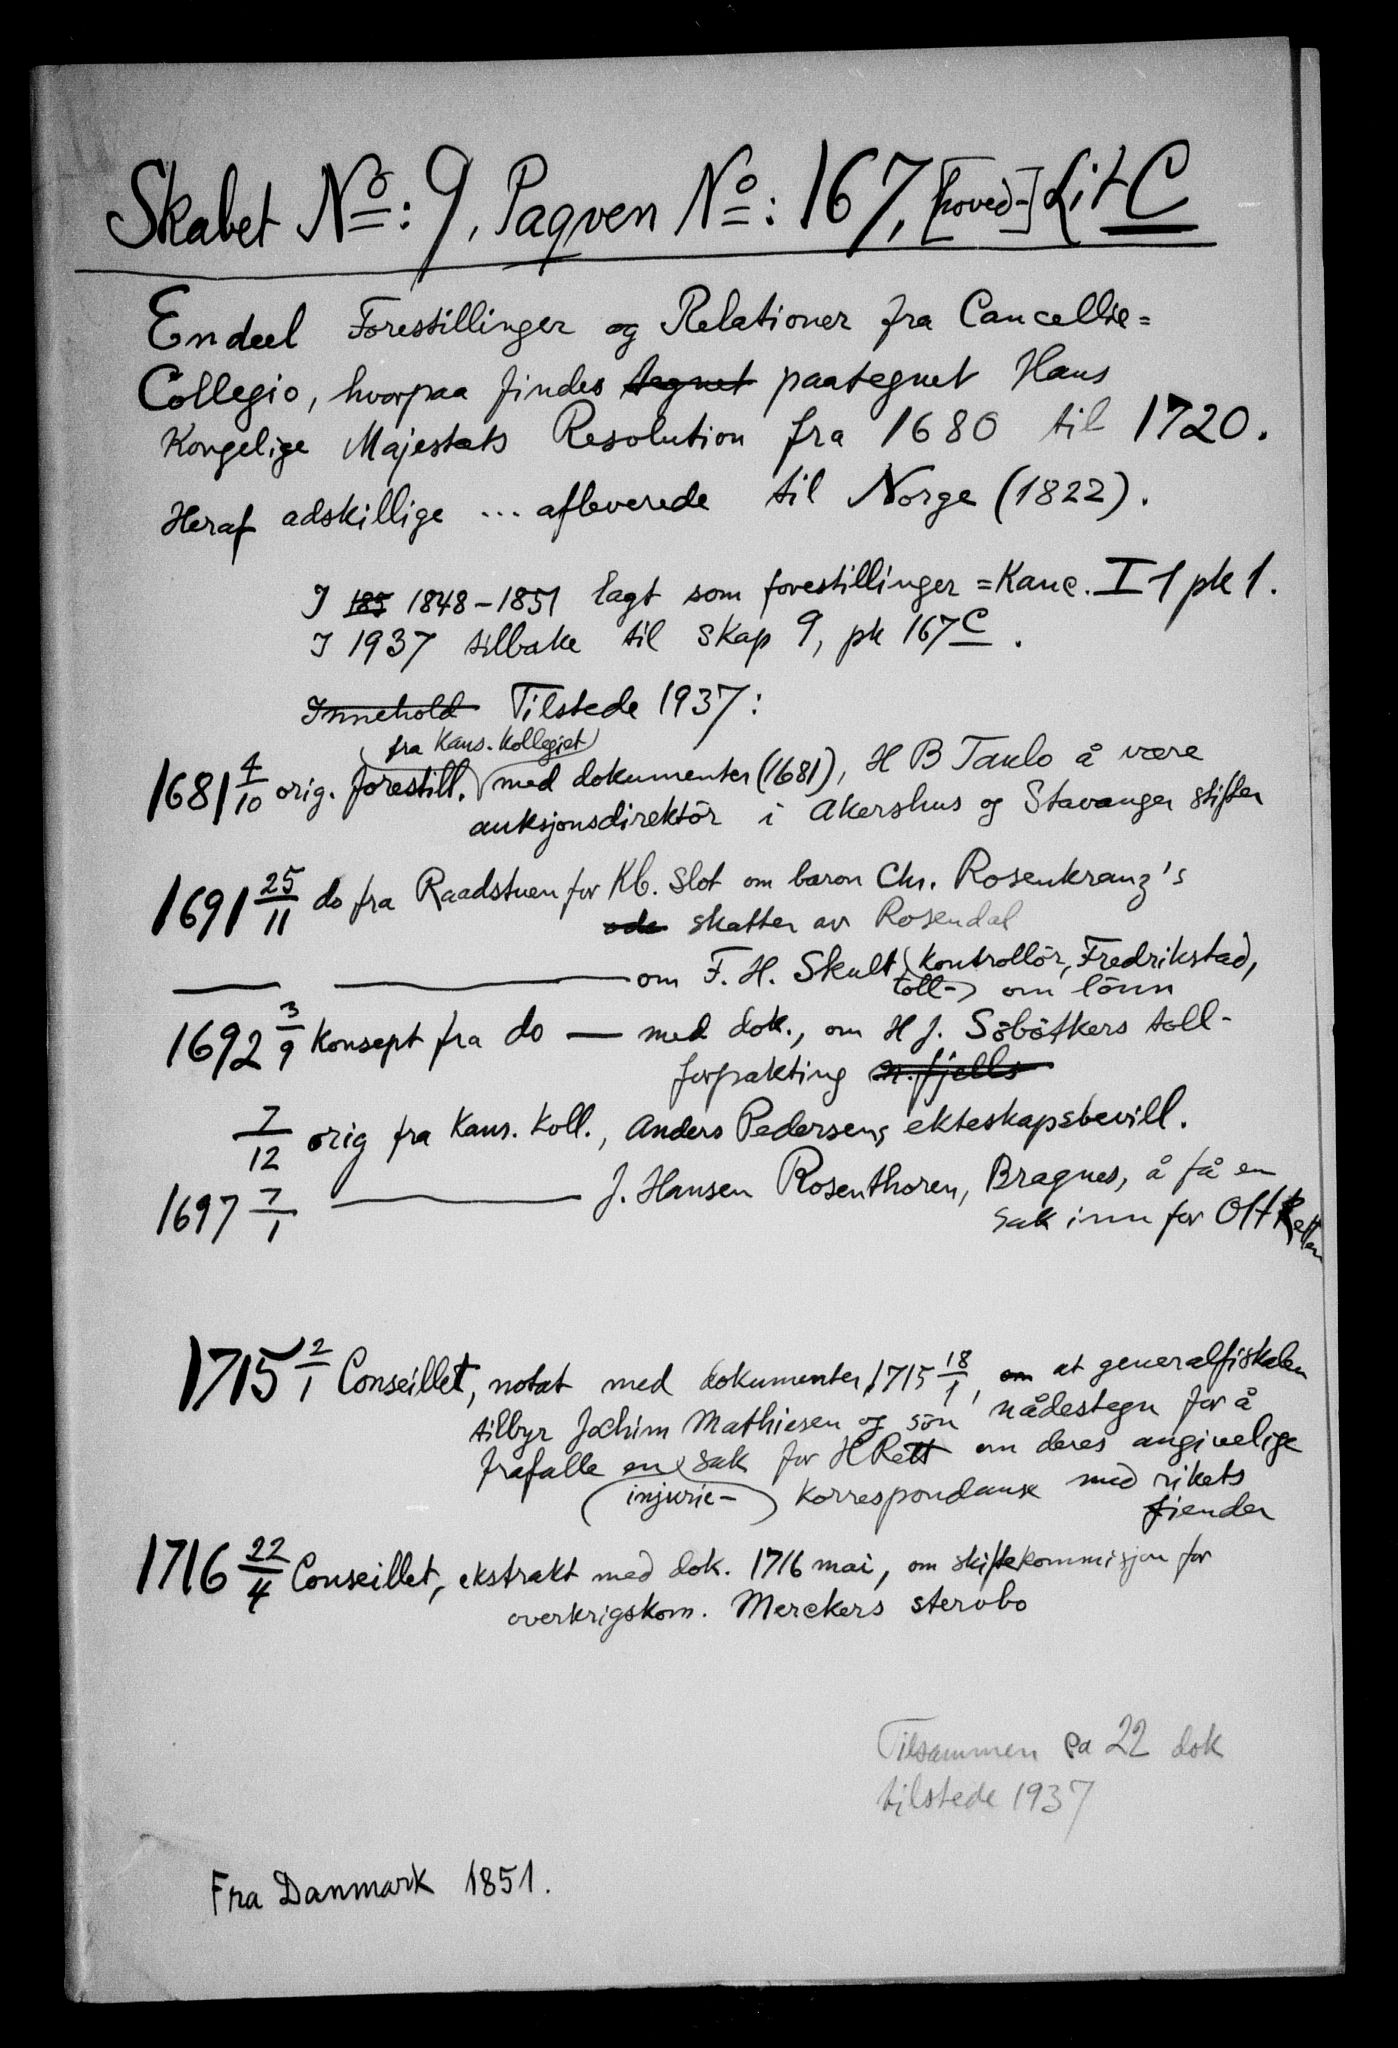 Skabet No: 9, Paqven No: 167, [hoved-] Lit C
Endeel Forestillinger og Relationer fra Cancellie=
Collegio, hvorpaa findes tegnet paategnet Hans
Kongelige Majestæts Resolution fra 1680 til 1720.
Heraf adskillige ... afleverede til Norge (1822).
I 185 1848-1851 lagt som forestillinger = Kanc. I 1 pk 1.
I 1937 tilbake til skap 9, pk 167 C.
Innehold Tilstede 1937:
fra Kans. Kollegiet
1681 4/10 orig. forestill. med dokumenter (1681), H B Taulo å være
auksjonsdirektör i Akershus og Stavanger stifter
1691 25/11 do fra Raadstuen for Kb. Slot om baron Chr. Rosenkranz's
ode skatter av Rosendal
om F. H. Skult, kontrollör, Fredrikstad,
toll- om lönn
1692 3/9 Konsept fra do — med dok., om H J. Söbötkers toll-
forpakting n.fjells
7/12 orig fra Kans. Koll., Anders Pedersens ekteskapsbevill.
1697 7/1 J. Hansen Rosenthoren, Bragnes, å få en
sak inn for OHRetten
1715 2/1 Conseillet, notat med dokumenter 1715 18/1, om at generalfiskalen
tilbyr Jochim Mathiesen og sön nådestegn for å
frafalle en sak for HRett om deres angivelige
injurie- korrespondanse med rikets
fiender
1716 22/4 Conseillet, ekstrakt med dok. 1716 mai, om skiftekommisjon for
overkrigskom. Merckers stervbo
Tilsammen ca 22 dok
tilstede 1937
Fra Danmark 1851.